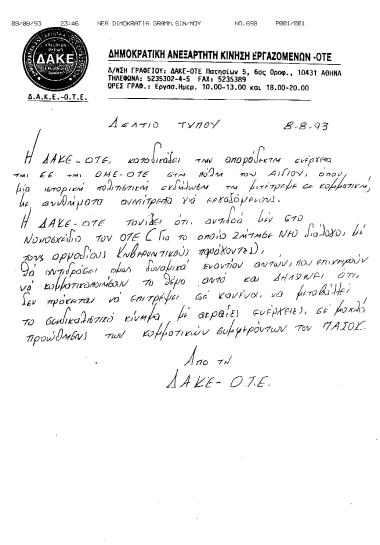 08/08/93 23:46 NEA DIMOKRATIA GRAMM.SIN/MOY NO.698 P001/001
ΔΑΚΕ
Δ.Α.Κ.Ε.-Ο.Τ.Ε.
ΔΗΜΟΚΡΑΤΙΚΗ ΑΝΕΞΑΡΤΗΤΗ ΚΙΝΗΣΗ ΕΡΓΑΖΟΜΕΝΩΝ -ΟΤΕ
Δ/ΝΣΗ ΓΡΑΦΕΙΟΥ: ΔΑΚΕ-ΟΤΕ Πατησίων 5, 6ος Οροφ., 10431 ΑΘΗΝΑ
ΤΗΛΕΦΩΝΑ: 5235302-4-5 FAX: 5235389
ΩΡΕΣ ΓΡΑΦ.: Εργασ.Ημερ. 10.00-13.00 και 18.00-20.00
ΔΕΛΤΙΟ ΤΥΠΟΥ 8-8-93
Η ΔΑΚΕ-ΟΤΕ, καταδικάζει την απαράδεκτη ενέργεια
της ΕΕ της ΟΜΕ-ΟΤΕ στη πόλη του ΑΙΓΙΟΥ, όπου
μία ιστορική πολιτιστική εκδήλωση τη μετέτρεψε σε κομματική,
με συνθήματα ανεπίτρεπτα για εργαζόμενους.
Η ΔΑΚΕ-ΟΤΕ τονίζει ότι, αντιδρά μεν στο
Νομοσχέδιο του ΟΤΕ (Για το οποίο ΖΗΤΗΣΕ ΝΕΟ διάλογο, με
τους αρμόδιους Κυβερνητικούς παράγοντες),
θα αντιδράσει όμως δυναμικά εναντίον αυτών, που επιχειρούν
να κομματικοποιήσουν το θέμα αυτό και ΔΗΛΩΝΕΙ ότι,
δεν πρόκειται να επιτρέψει σε κανένα, να μεταβάλλει
το συνδικαλιστικό κίνημα, με ακραίες ενέργειες, σε μοχλό
προώθησης των κομματικών συμφερόντων του ΠΑΣΟΚ.
Από τη
ΔΑΚΕ-Ο.Τ.Ε.